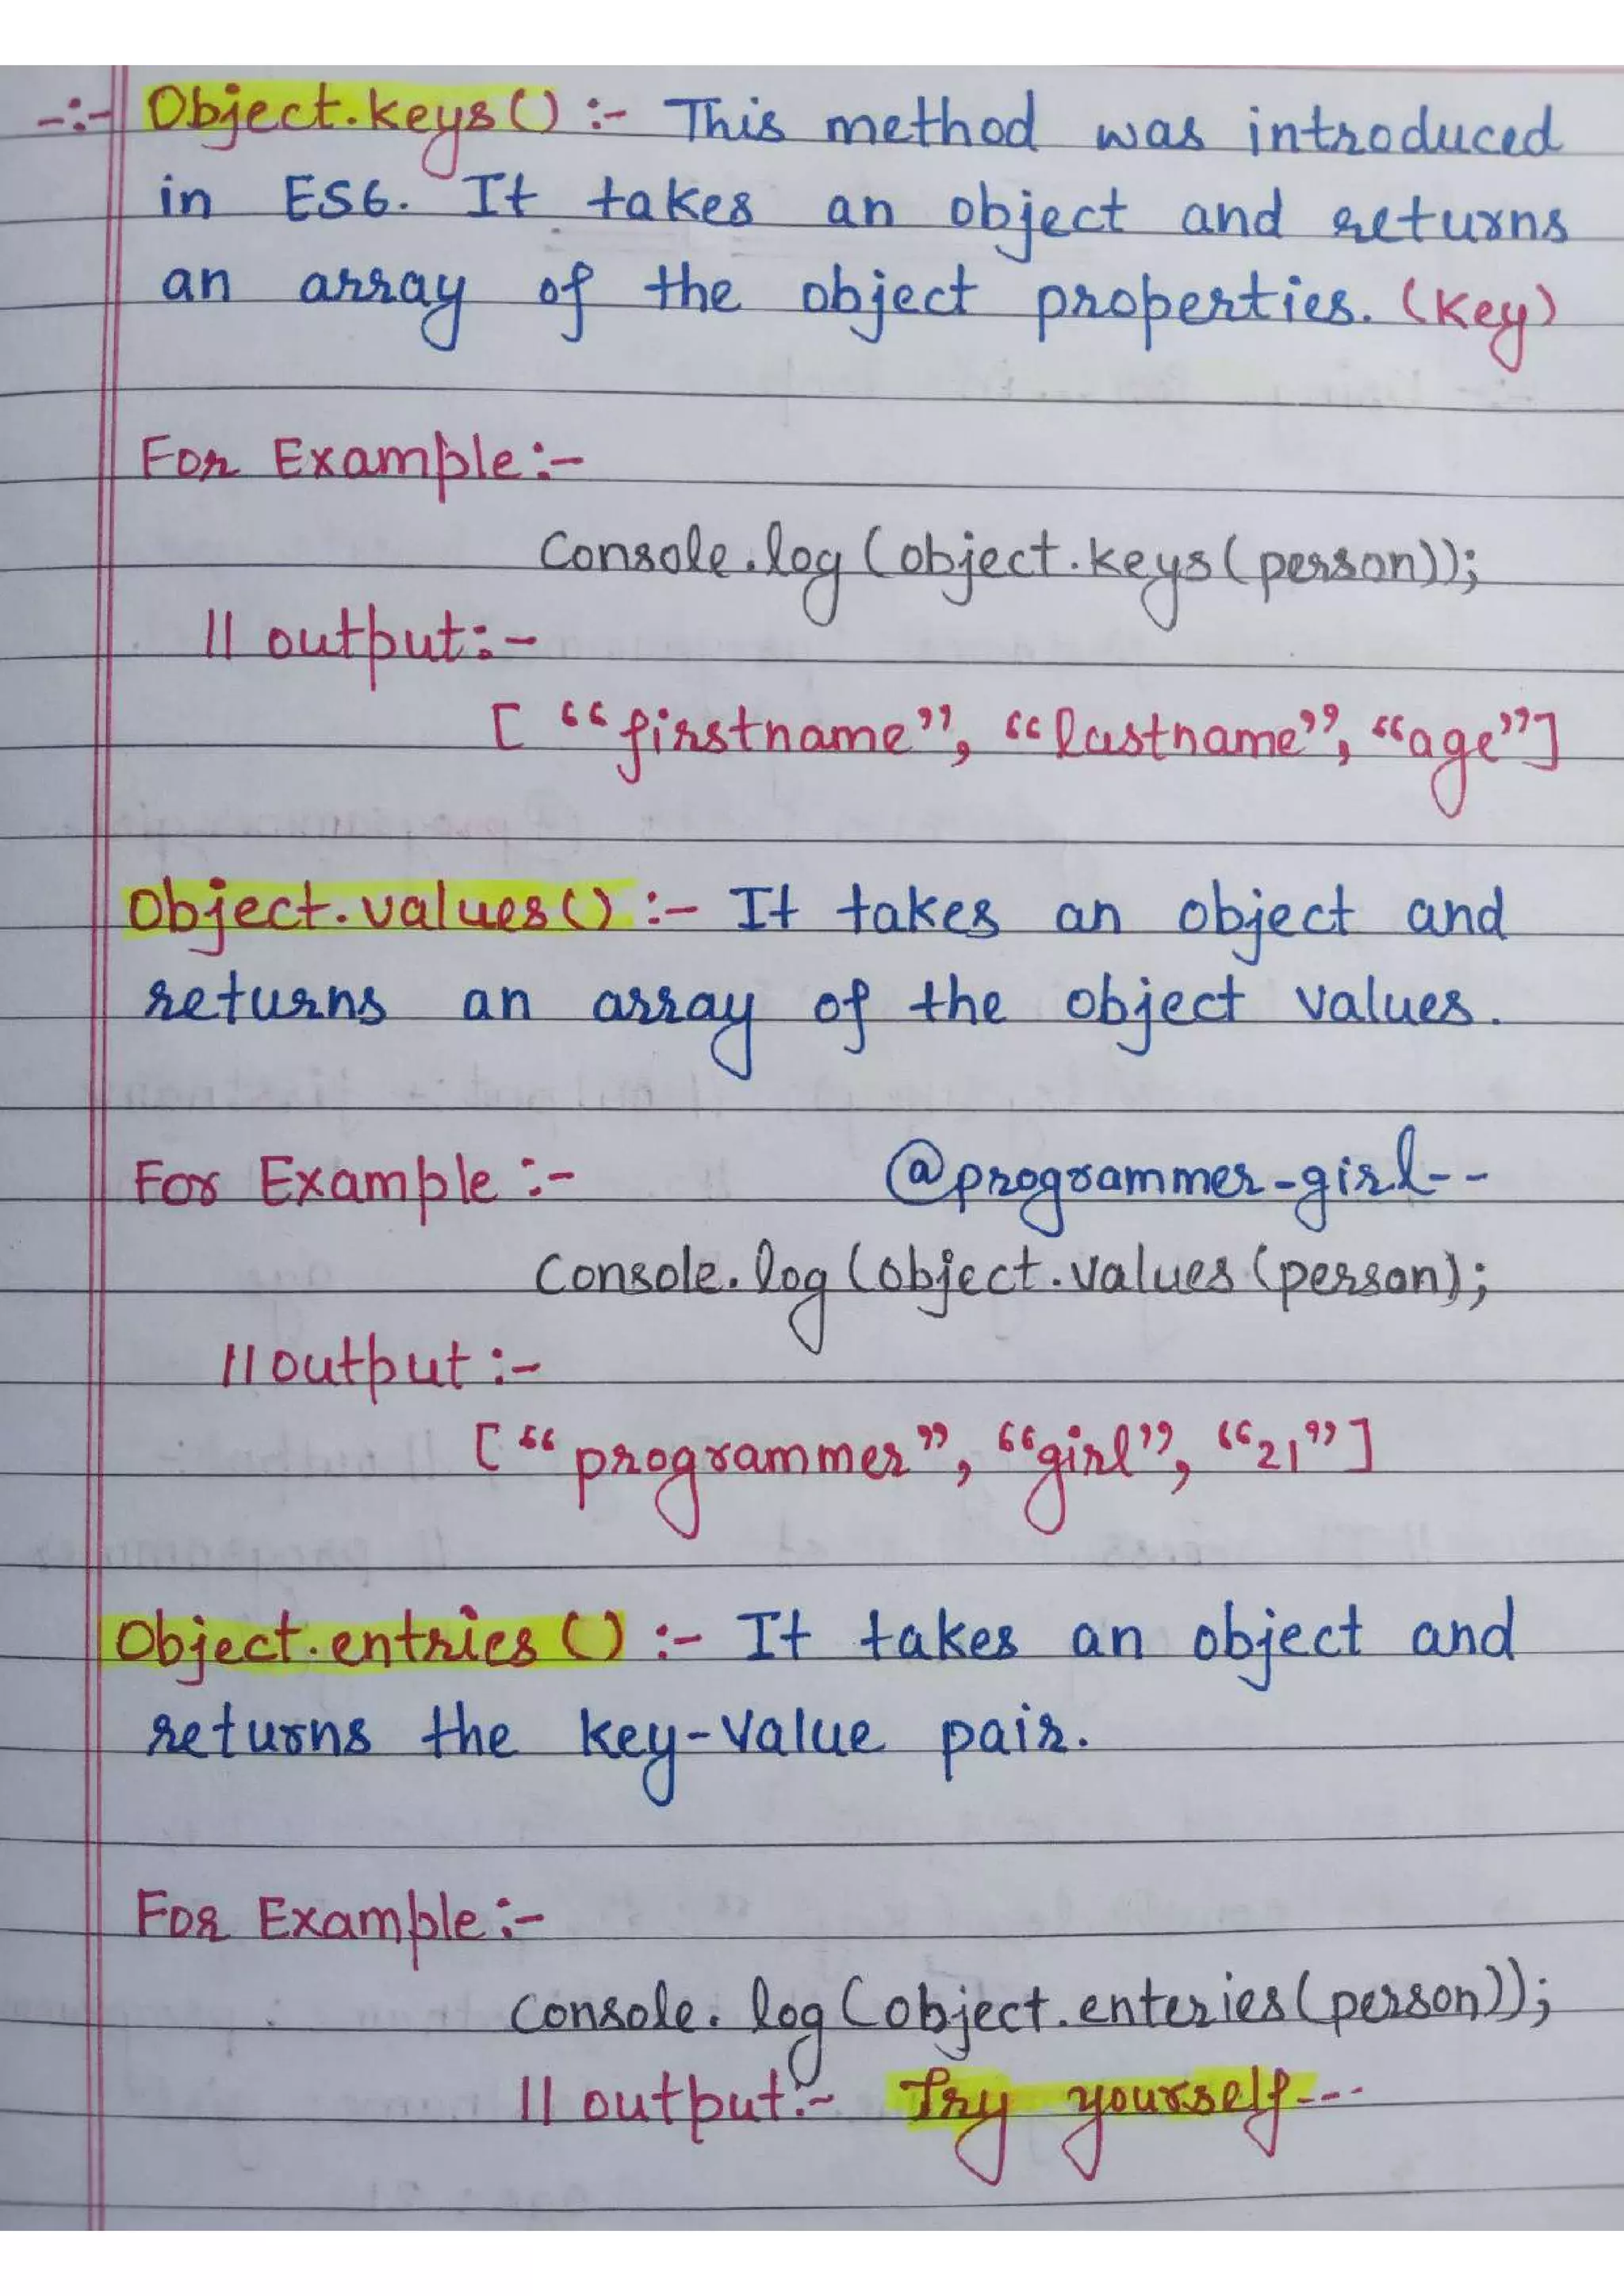 -:- Object.keys() :- This method was introduced
in ES6. It takes an object and returns
an array of the object properties. (Key)
For Example:-
Console.log(object.keys(person));
// output:-
[ "firstname", "lastname", "age"]
Object.values() :- It takes an object and
returns an array of the object values.
For Example :-
@programmer-girl--
Console.log(object.values(person);
//output :-
["programmer", "girl", "21"]
Object.entries() :- It takes an object and
returns the key-value pair.
For Example:-
Console.log(object.enteries(person));
// output:- Try yourself---